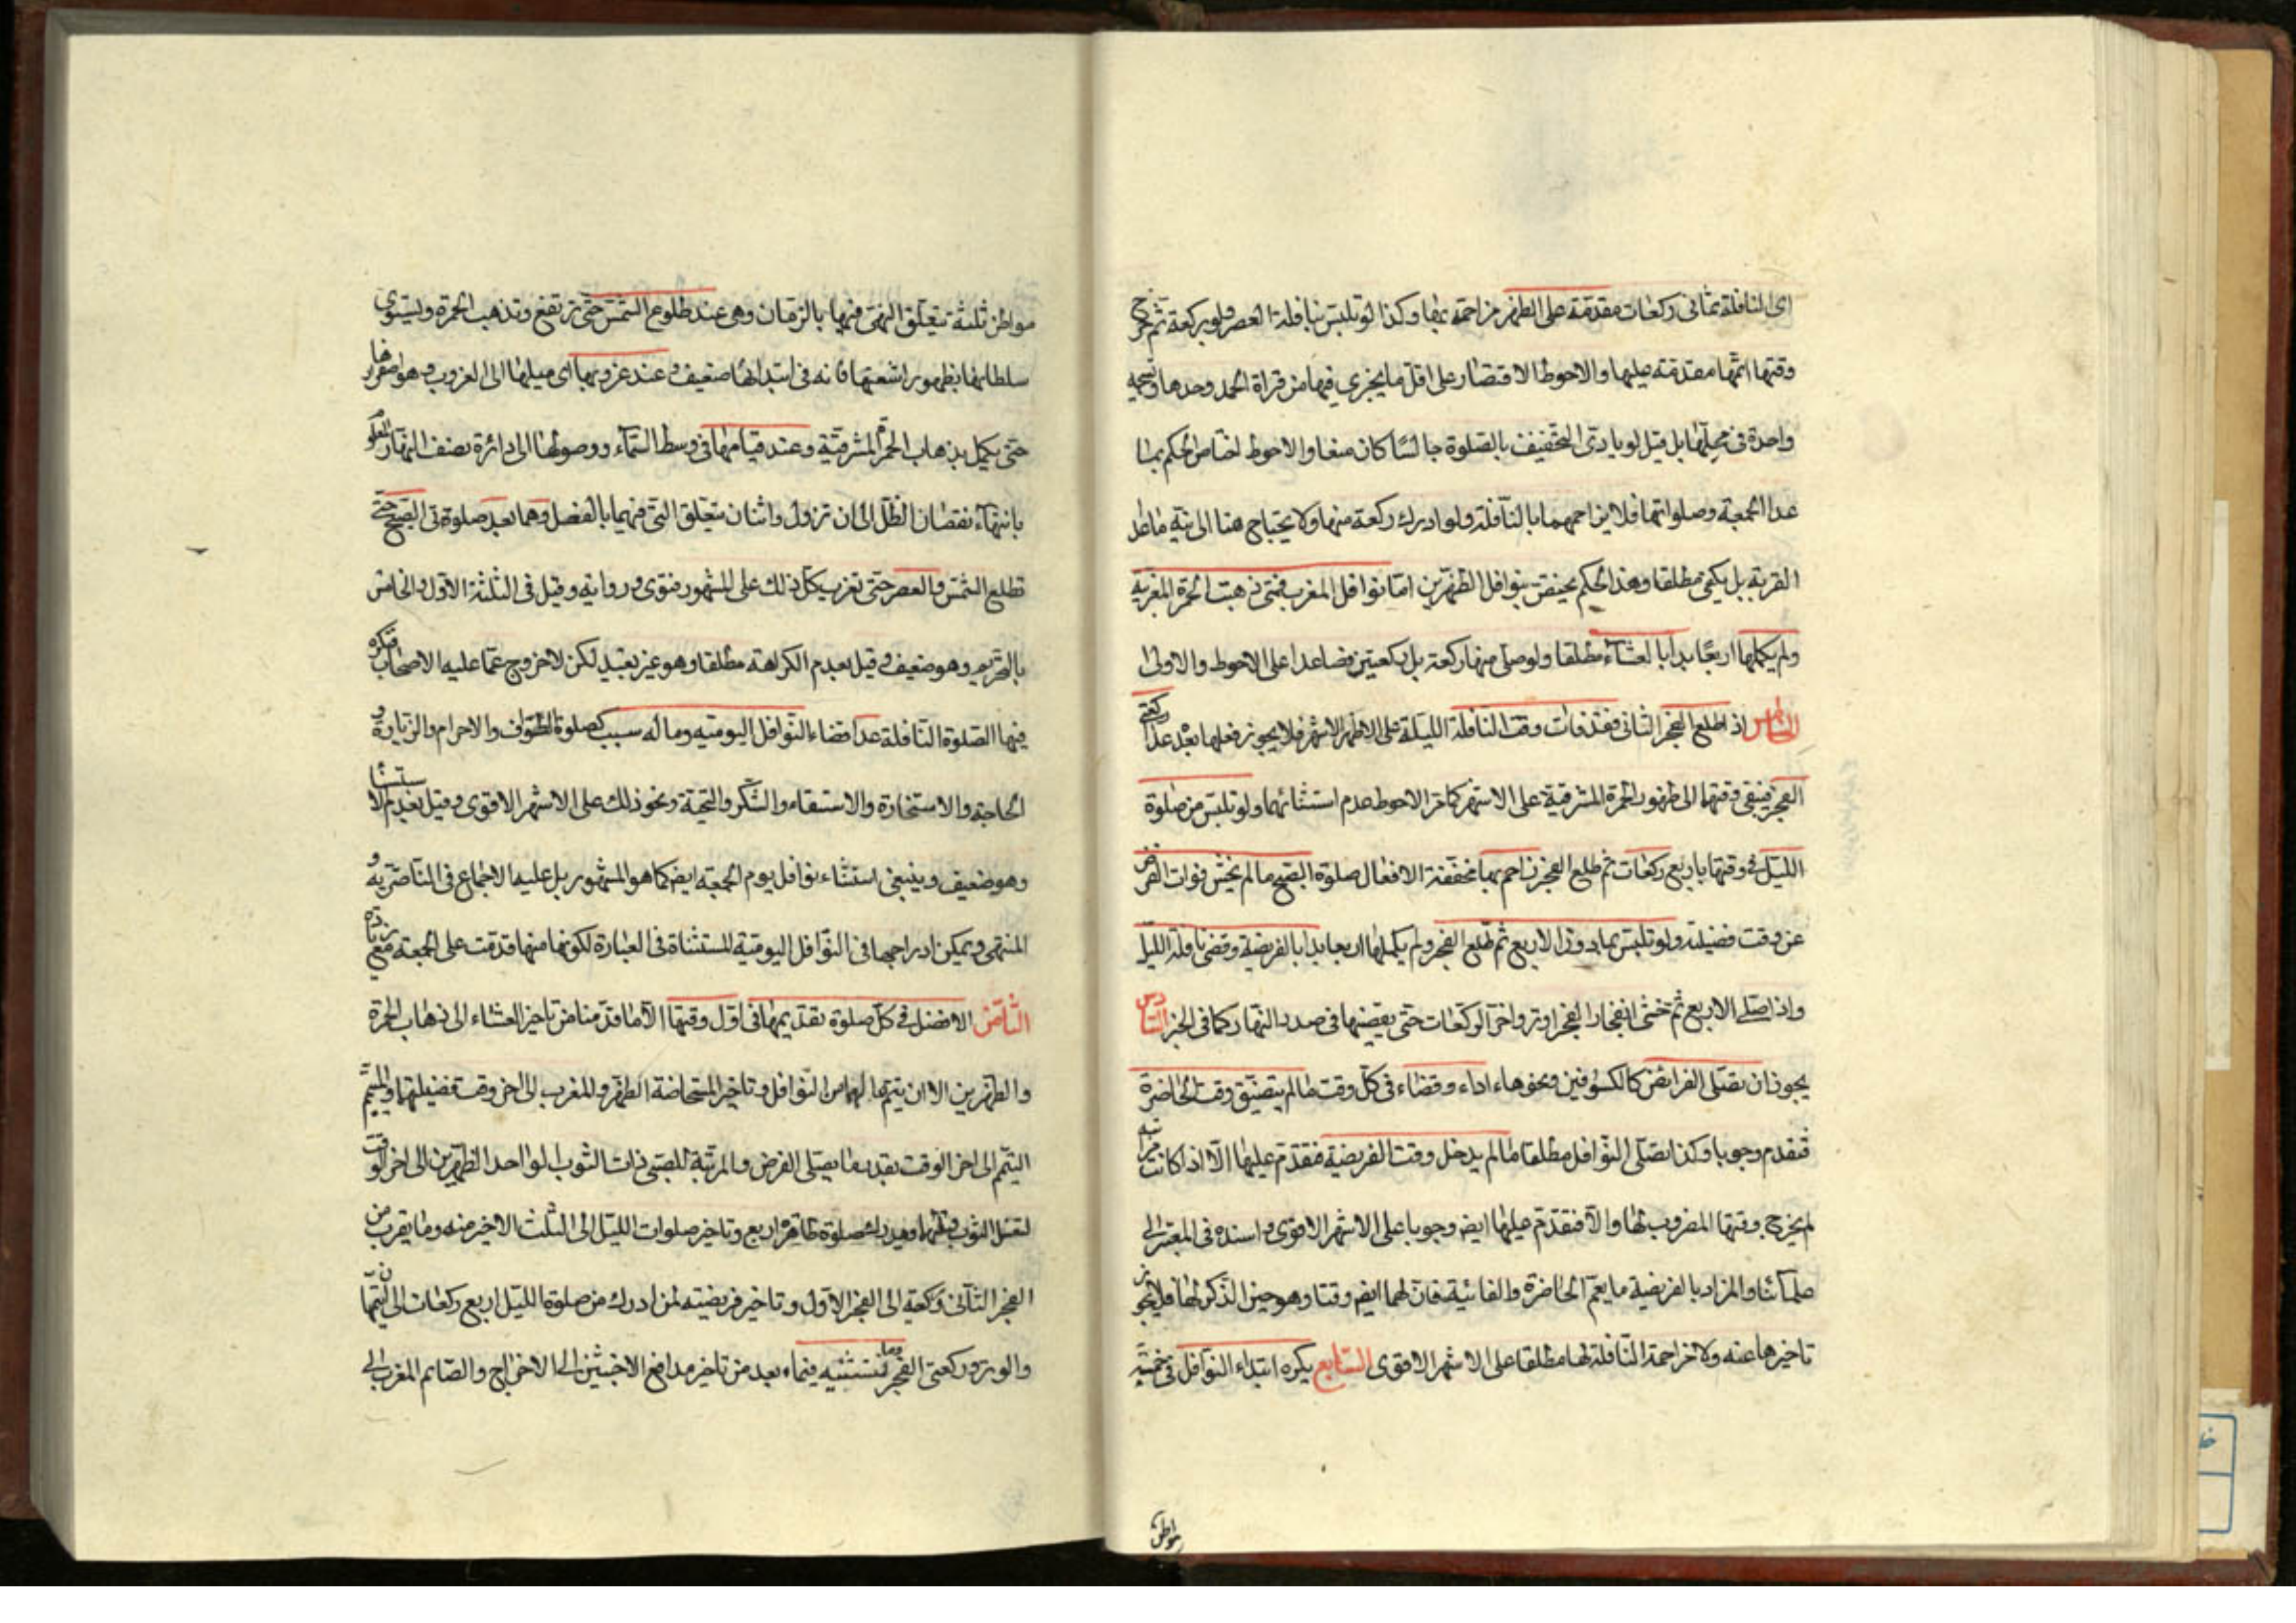 اى النافلة بثمانى ركعات مقدمة على الظهر مزاحمة بها وكذا لو تلبس بنافلة العصر ولو بركعة ثم خرج
وقتها اتمها مقدمة عليها والاحوط الاقتصار على اقل ما يجزى فيها من قراة الحمد وحدها وتسبيحه
واحدة فى محلها بل قيل لو يادى التخفيف بالصلوة جالسًا كان متعا والاحوط اختاص الحكم بما
عدا الجمعة وصلواتها فلا يزاحمهما بالنافلة ولو ادرك ركعة منها ولا يحتاج هنا الى نية ماعدا
القربة بل يكفى مطلقا وهذا الحكم يختص بنوافل الظهرين امّا نوافل المغرب فمتى ذهبت الحمرة المغربية
ولم يكملها اربعًا بدا بالعشاء مطلقا ولو صلى منها ركعة بل ركعتين فصاعدا على الاحوط والاولى
الخامس اذ اطلع الفجر الثانى فقد فات وقت النافلة الليلة على الاظهر الاشهر فلا يجوز فعلها بعد عدا ركعتى
الفجر فيبقى وقتها الى ظهور الحمرة المشرقية على الاشهر كما مر الاحوط عدم استثنائهما ولو تلبس من صلوة
الليل فى وقتها باربع ركعات ثم طلع الفجر زاحم بها مخففة الافعال صلوة الصبح ما لم يخش فوات الفرض
عن وقت فضيلته ولو تلبس بما دون الاربع ثم طلع الفجر ولم يكملها اربعا بدا بالفريضة وقضى نافلة الليل
واذا صلى الاربع ثم خشى انفجار الفجر اوتر واخر الركعات حتى يقضيها فى صدر النهار كما فى الخبر السادس
يجوز ان يصلى الفرائض كالكسوفين ونحوهاء اداء وقضاء فى كل وقت ما لم يتضيق وقت الحاضرة
فتقدم وجوبا وكذا يصلى النوافل مطلقا ما لم يدخل وقت الفريضة فتقدم عليها الا اذا كانت مراتبه
لم يخرج وقتها المضروب لها والا فتقدم عليها ايضا وجوبا على الاشهر الاقوى واسنده فى المعتبر الى
علمائنا والمراد بالفريضة ما يعم الحاضرة والفائتة فان لهما ايضا وقتا وهو حين الذكر لها فلا يجوز
تاخيرها عنه ولا مزاحمة النافلة لها مطلقا على الاشهر الاقوى السابع يكره ابتداء النوافل فى خمسة
مواطن
مواطن ثلثة تتعلق النهى فيها بالزمان وهى عند طلوع الشمس حتى ترتفع وتذهب الحمرة ويستوى
سلطانها بظهور اشعتها فانه فى ابتدائها ضعيف وعند غروبها اى ميلها الى الغروب وهو اصفرارها
حتى يكمل بذهاب الحمرة المشرقية وعند قيامها فى وسط السماء ووصولها الى دائرة نصف النهار المعلوم
بانتهاء نقصان الظل الى ان تزول واثنان متعلق النهى فيهما بالفعل وهما بعد صلوتى الصبح حتى
تطلع الشمس والعصر حتى تغرب كل ذلك على المشهور فتوى ورواية وقيل فى الثلثة الاول والخامس
بالتحريم وهو ضعيف وقيل بعدم الكراهة مطلقا وهو غير بعيد لكن لاخروج عما عليه الاصحاب فتكره
فيها الصلوة النافلة عدا قضاء النوافل اليومية وماله سبب كصلوة الطواف والاحرام والزيارة و
الحاجة والاستخارة والاستسقاء والشكر والتحية ونحو ذلك على الاشهر الاقوى وقيل بعدم الاستثنا
وهو ضعيف وينبغى استثناء نوافل يوم الجمعة ايضا كما هو المشهور بل عليه الاجماع فى الناصرية و
المنتهى ويمكن ادراجها فى النوافل اليومية المستثناة فى العبارة لكونها منها قدمت على الجمعة مع زيادة
الثامن الافضل فى كل صلوة تقديمها فى اول وقتها الا ما قدمنا من تاخير العشاء الى ذهاب الحمرة
والظهرين الا ان يتمها لهما من النوافل وتاخير المستحاضة الظهر والمغرب الى اخر وقت فضيلتها والمتيمم
التيمم الى اخر الوقت بقدر ما يصلى الفرض والمربّية للصبى ذات الثوب الواحد الظهرين الى اخر الوقت
لغسل الثوب قبلهما وفيدرك صلوة طاهرة اربع وتاخير صلوات الليل الى الثلث الاخير منه وما يقرب من
الفجر الثانى وركعتيه الى الفجر الاول وتاخير فريضته لمن ادرك من صلوة الليل اربع ركعات الى ان يتمها
والوتر وركعتى الفجر وما نستثنيه فيماء بعد من تاخير مدافع الاخبثين الى الاخراج والصائم المغرب الى